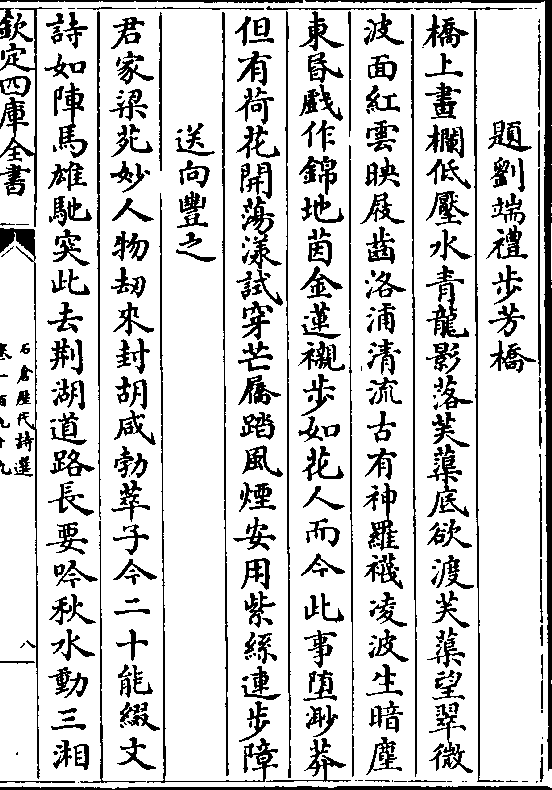 題劉端禮步芳橋
橋上畫欄低壓水青龍影落芙蕖底欲渡芙蕖望翠微
波面紅雲映屐齒洛浦清流古有神羅襪凌波生暗塵
東昏戲作錦地茵金蓮襯步如花人而今此事墮渺莽
但有荷花開蕩漾試穿芒屩踏風煙安用紫絲連步障
送向豐之
君家梁苑妙人物刼來封胡咸勃萃子今二十能綴文
詩如陣馬雄馳突此去荆湖道路長要吟秋水動三湘
欽定四庫全書
石倉歷代詩選
卷一百九十九
八